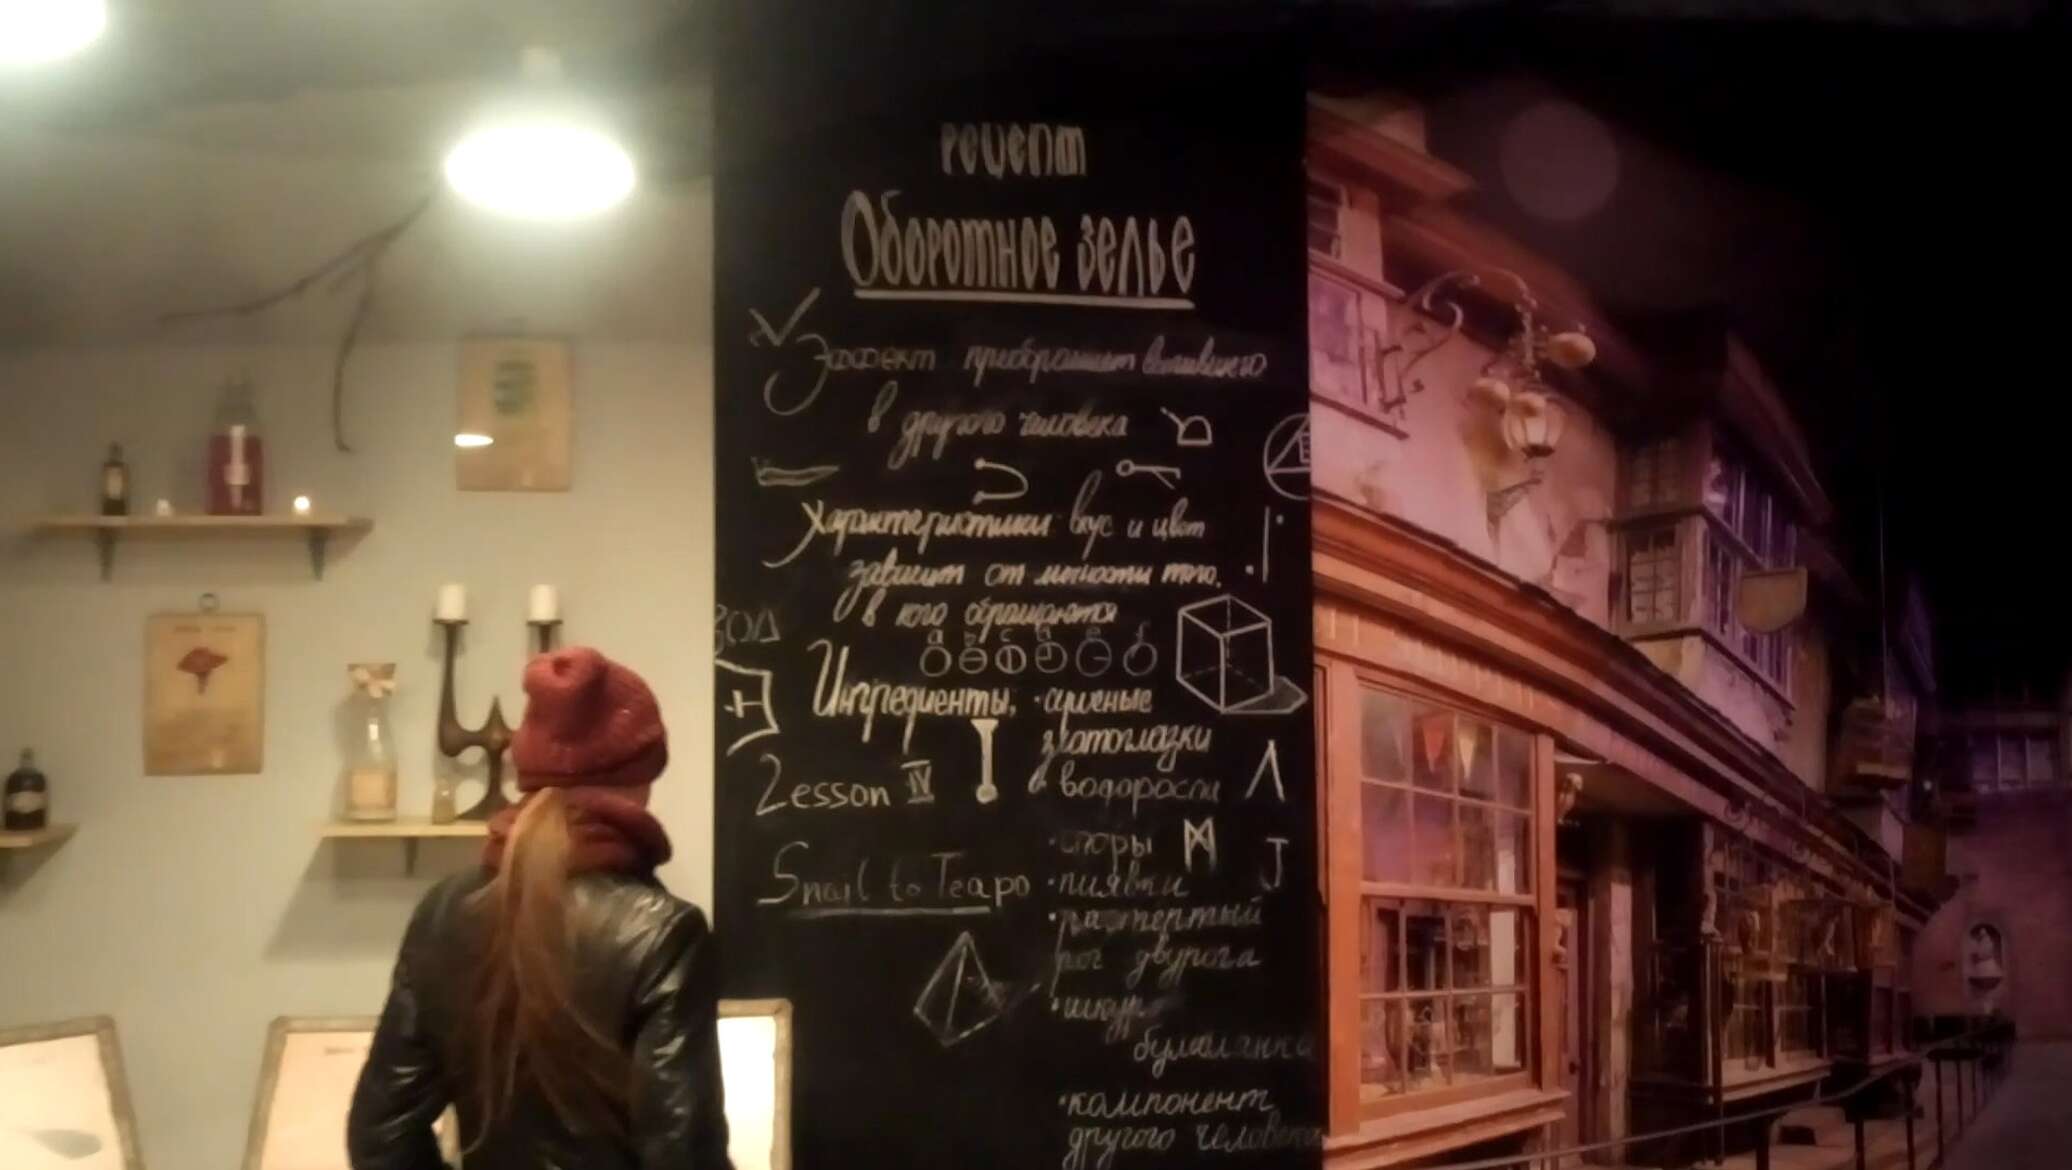 рецепт
Оборотное зелье
Эффект преобразит выпившего
в другого человека
Характеристики: вкус и цвет
зависит от личности того,
в кого обращаются
a b c d e f
Ингредиенты: • сушеные
златоглазки
• водоросли
• споры
• пиявки
• растертый
рог двурога
• шкура
бумсланка
• компонент
другого человека
Lesson IV
Snail to Teapo